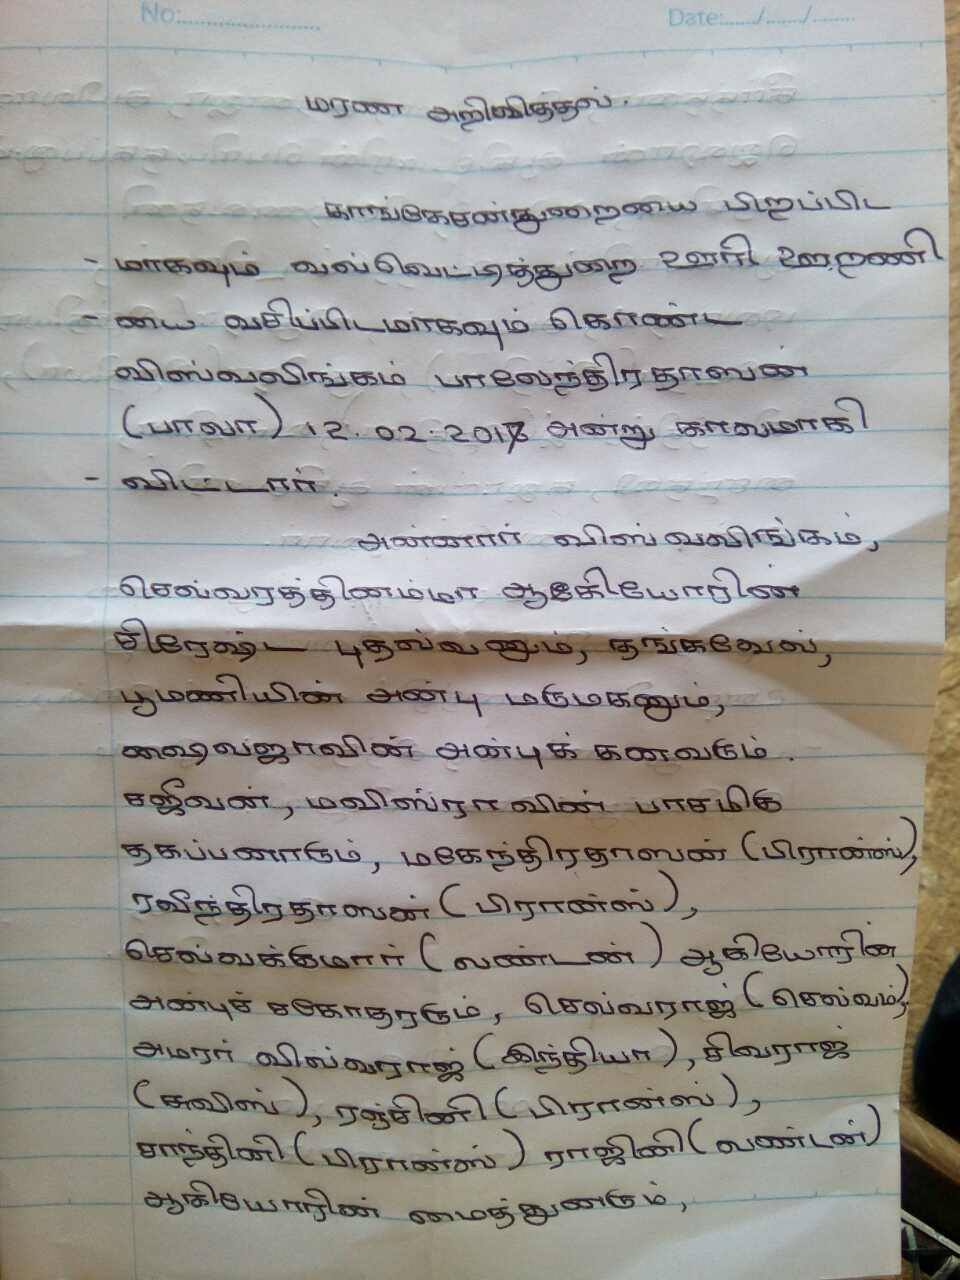 No:........................ Date:....../....../........
மரண அறிவித்தல்.
காங்கேசன்துறையை பிறப்பிட
- மாகவும் வல்வெட்டித்துறை ஊரி ஊறணி
- யை வசிப்பிடமாகவும் கொண்ட
விஸ்வலிங்கம் பாலேந்திரதாஸன்
(பாலா) 12.02.2018 அன்று காலமாகி
- விட்டார்.
அன்னார் விஸ்வலிங்கம்,
செல்வரத்தினம்மா ஆகியோரின்
சிரேஷ்ட புதல்வனும், தங்கவேல்,
பூமணியின் அன்பு மருமகனும்,
ஷைலஜாவின் அன்புக் கணவரும்.
சஜீவன், மவிஸ்ராவின் பாசமிகு
தகப்பனாரும், மகேந்திரதாஸன் (பிரான்ஸ்),
ரவீந்திரதாஸன் (பிரான்ஸ்),
செல்வக்குமார் (லண்டன்) ஆகியோரின்
அன்புச் சகோதரரும், செல்வராஜ் (செல்வம்),
அமரர் வில்வராஜ் (இந்தியா), சிவராஜ்
(சுவிஸ்), ரஞ்சினி (பிரான்ஸ்),
சாந்தினி (பிரான்ஸ்) ராஜினி (லண்டன்)
ஆகியோரின் மைத்துனரும்,